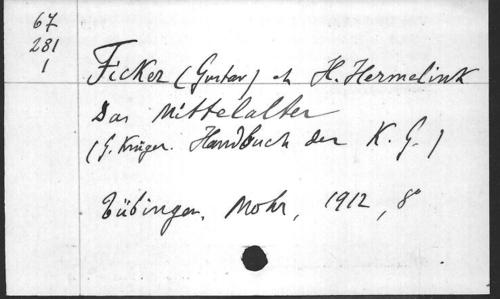 67
281
1
Ficker (Gustav) et H. Hermelink
Das Mittelalter
(G. Krüger. Handbuch der K. G.)
Tübingen, Mohr, 1912, 8°